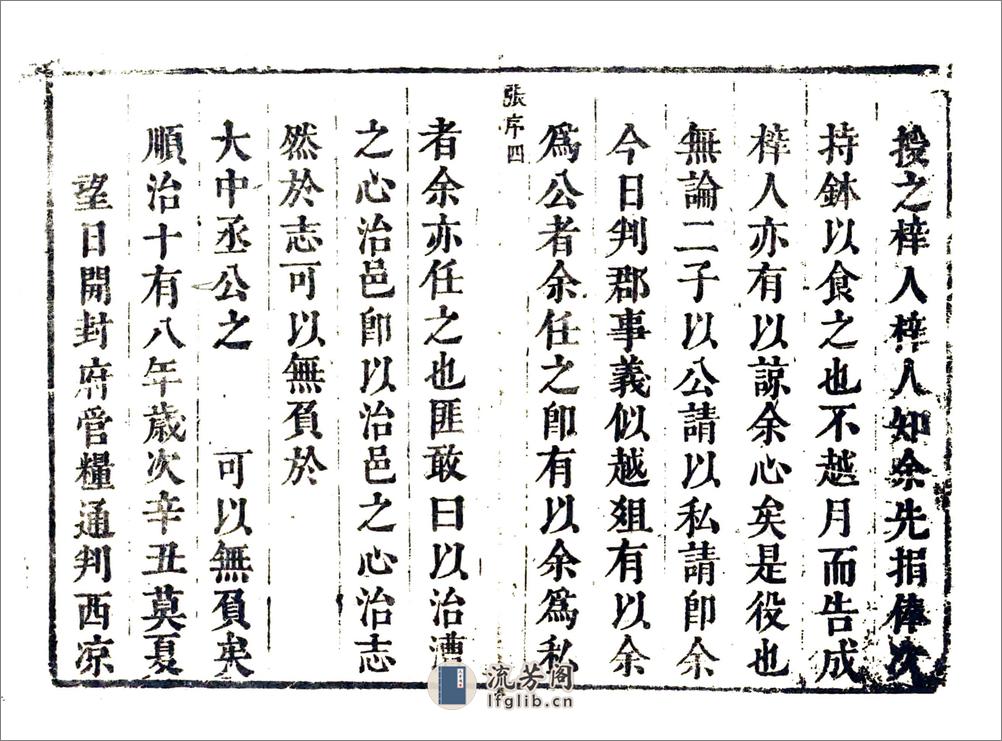 授之梓人梓人知余先捐俸次
持鉢以食之也不越月而告成
梓人亦有以諒余心矣是役也
無論二子以公請以私請卽余
今日判郡事義似越爼有以余
爲公者余任之卽有以余爲私
張序四
者余亦任之也匪敢曰以治漕
之心治邑卽以治邑之心治志
然於志可以無負於
大中丞公之 可以無負矣
順治十有八年歲次辛丑莫夏
望日開封府管糧通判西凉
流芳阁
lfglib.cn